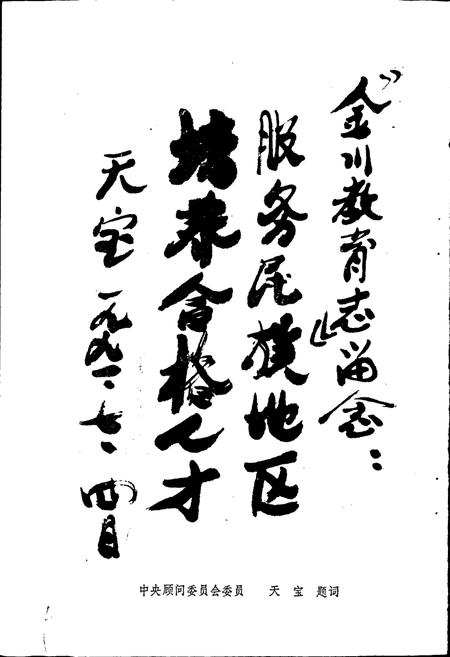 《金川教育志》留念：
服务民族地区
培养合格人才
天宝 一九九一、七、四日
中央顾问委员会委员 天 宝 题词